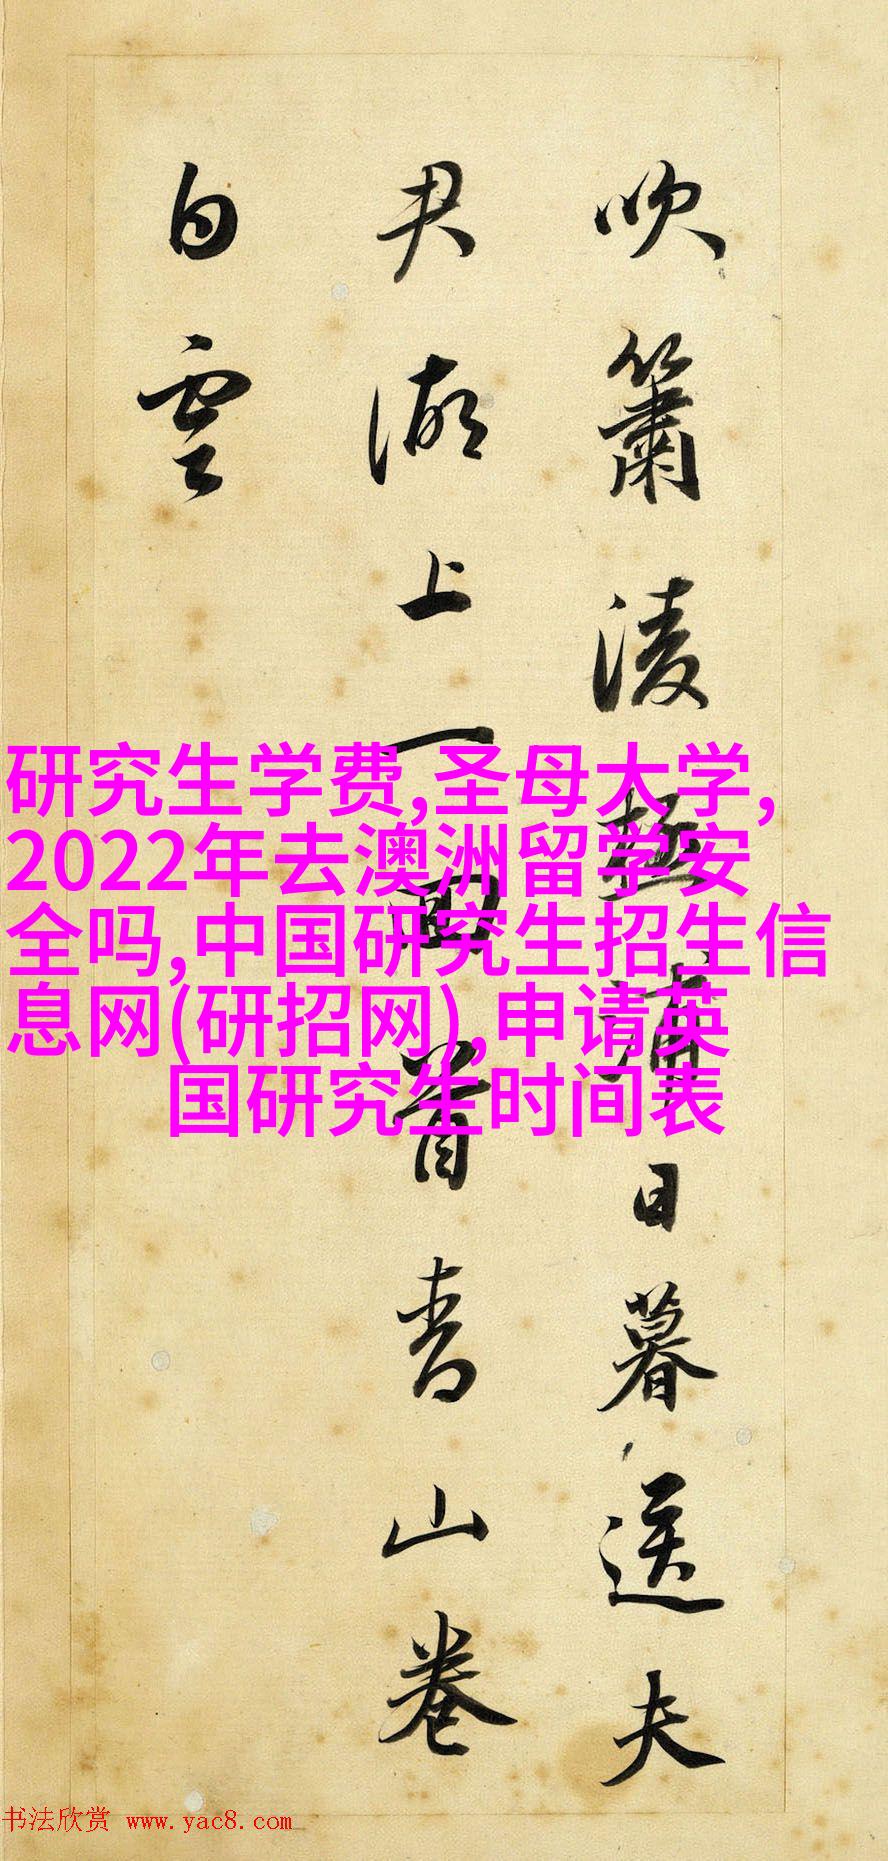 吹簫凌極浦日暮送夫
君湖上一回首青山卷
白雲
研究生学费,圣母大学,
2022年去澳洲留学安
全吗,中国研究生招生信
息网(研招网),申请英
国研究生时间表
书法欣赏 www.yac8.com